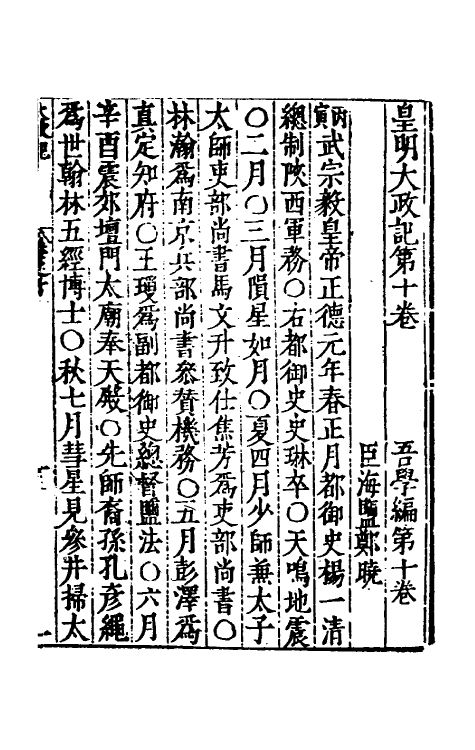 皇明大政記第十卷　吾學編第十卷
臣海鹽鄭曉
丙寅武宗毅皇帝正德元年春正月都御史楊一清
總制陜西軍務〇右都御史史琳卒〇天鳴地震
〇二月〇三月隕星如月〇夏四月少師兼太子
太師吏部尚書馬文升致仕焦芳爲吏部尚書〇
林瀚爲南京兵部尚書參贊機務〇五月彭澤爲
真定知府〇王瓊爲副都御史總督鹽法〇六月
辛酉震郊壇門太廟奉天殿〇先師裔孫孔彥繩
爲世翰林五經博士〇秋七月彗星見參井掃太